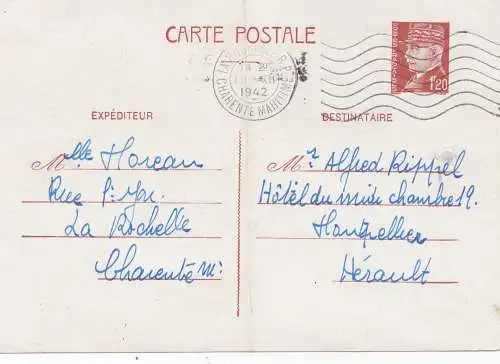 CARTE POSTALE
CHARENTE MARITIME
1942
1f20
EXPÉDITEUR
DESTINATAIRE
Mlle Horeau
Rue St Yon
La Rochelle
Charente Mme
Mr Alfred Rippel
Hôtel du midi chambre 19.
Montpellier
Hérault